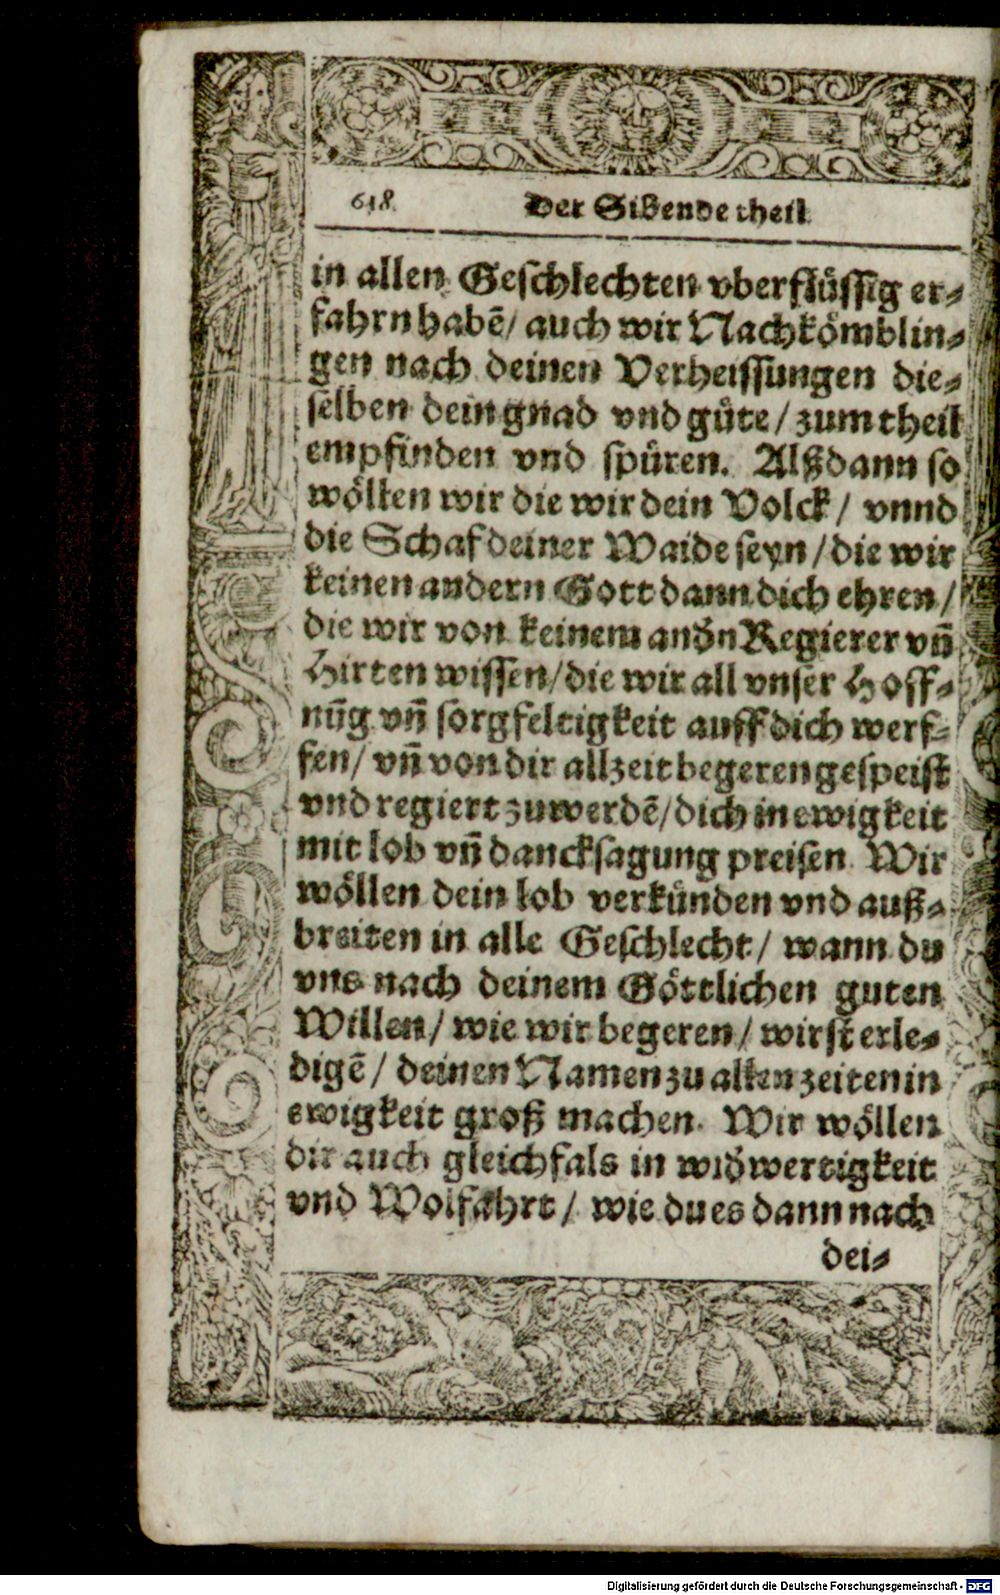 618. Der Sibende theil
in allen Geschlechten vberflüssig er-
fahrn habẽ/ auch wir Nachkömblin-
gen nach deinen Verheissungen die-
selben dein gnad vnd güte/ zum theil
empfinden vnd spüren. Alßdann so
wöllen wir die wir dein Volck/ vnnd
die Schaf deiner Waide seyn/ die wir
keinen andern Gott dann dich ehren/
die wir von keinem andn Regierer vñ
Hirten wissen/ die wir all vnser Hoff-
nũg vñ sorgfeltigkeit auff dich werf-
fen/ vñ von dir allzeit begeren gespeist
vnd regiert zuwerdẽ/ dich in ewigkeit
mit lob vñ dancksagung preisen. Wir
wöllen dein lob verkünden vnd auß-
breiten in alle Geschlecht/ wann du
vns nach deinem Göttlichen guten
Willen/ wie wir begeren/ wirst erle-
digẽ/ deinen Namen zu allen zeiten in
ewigkeit groß machen. Wir wöllen
dir auch gleichfals in widwertigkeit
vnd Wolfahrt/ wie du es dann nach
dei-
Digitalisierung gefördert durch die Deutsche Forschungsgemeinschaft - DFG